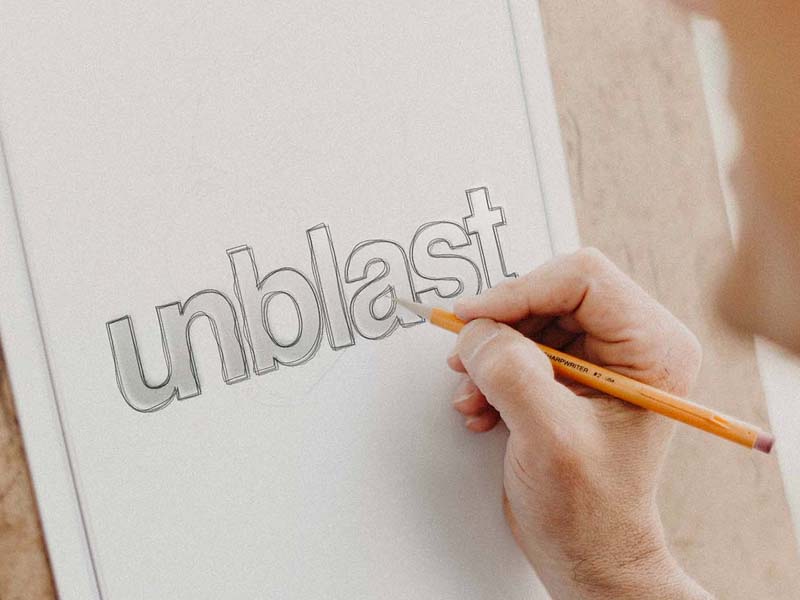 unblast
SHARPWRITER #2 USA